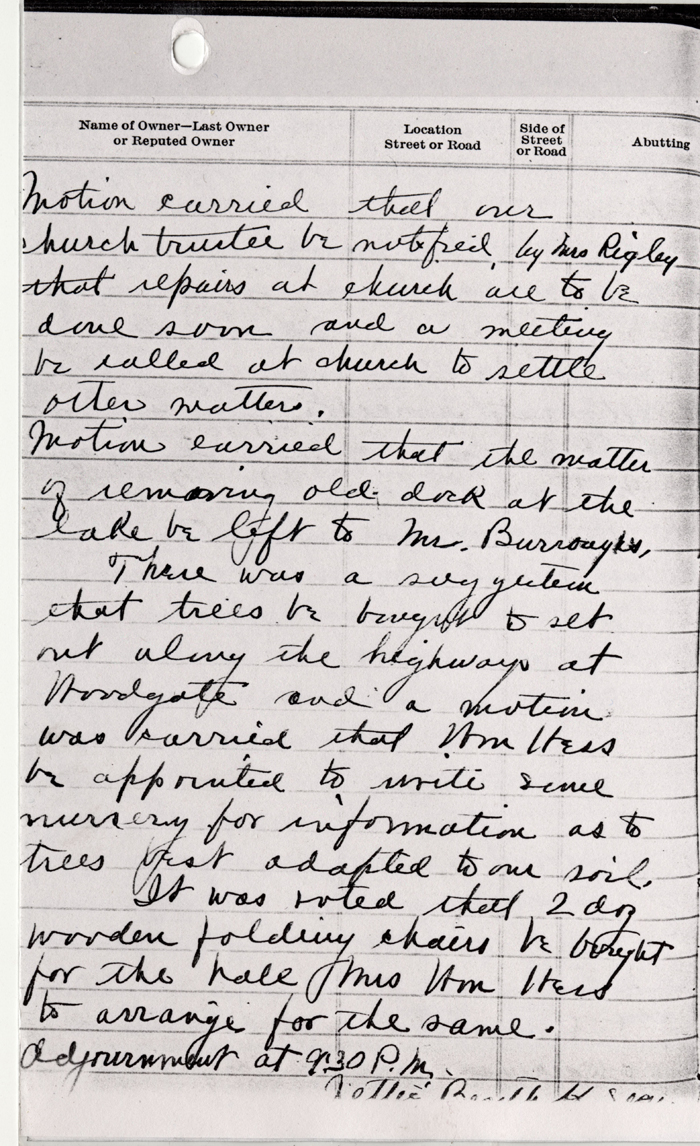 Name of Owner—Last Owner
or Reputed Owner
Location
Street or Road
Side of
Street
or Road
Abutting
Motion carried that our
church trustee be notified by Mrs Rigley
that repairs at church are to be
done soon and a meeting
be called at church to settle
other matters.
Motion carried that the matter
of removing old dock at the
lake be left to Mr. Burroughs,
There was a suggestion
that trees be bought to set
out along the highways at
Woodgate and a motion
was carried that Wm Hess
be appointed to write some
nursery for information as to
trees best adapted to our soil.
It was voted that 2 doz
wooden folding chairs be bought
for the hall Mrs Wm Hess
to arrange for the same.
Adjournment at 9:30 P.M.